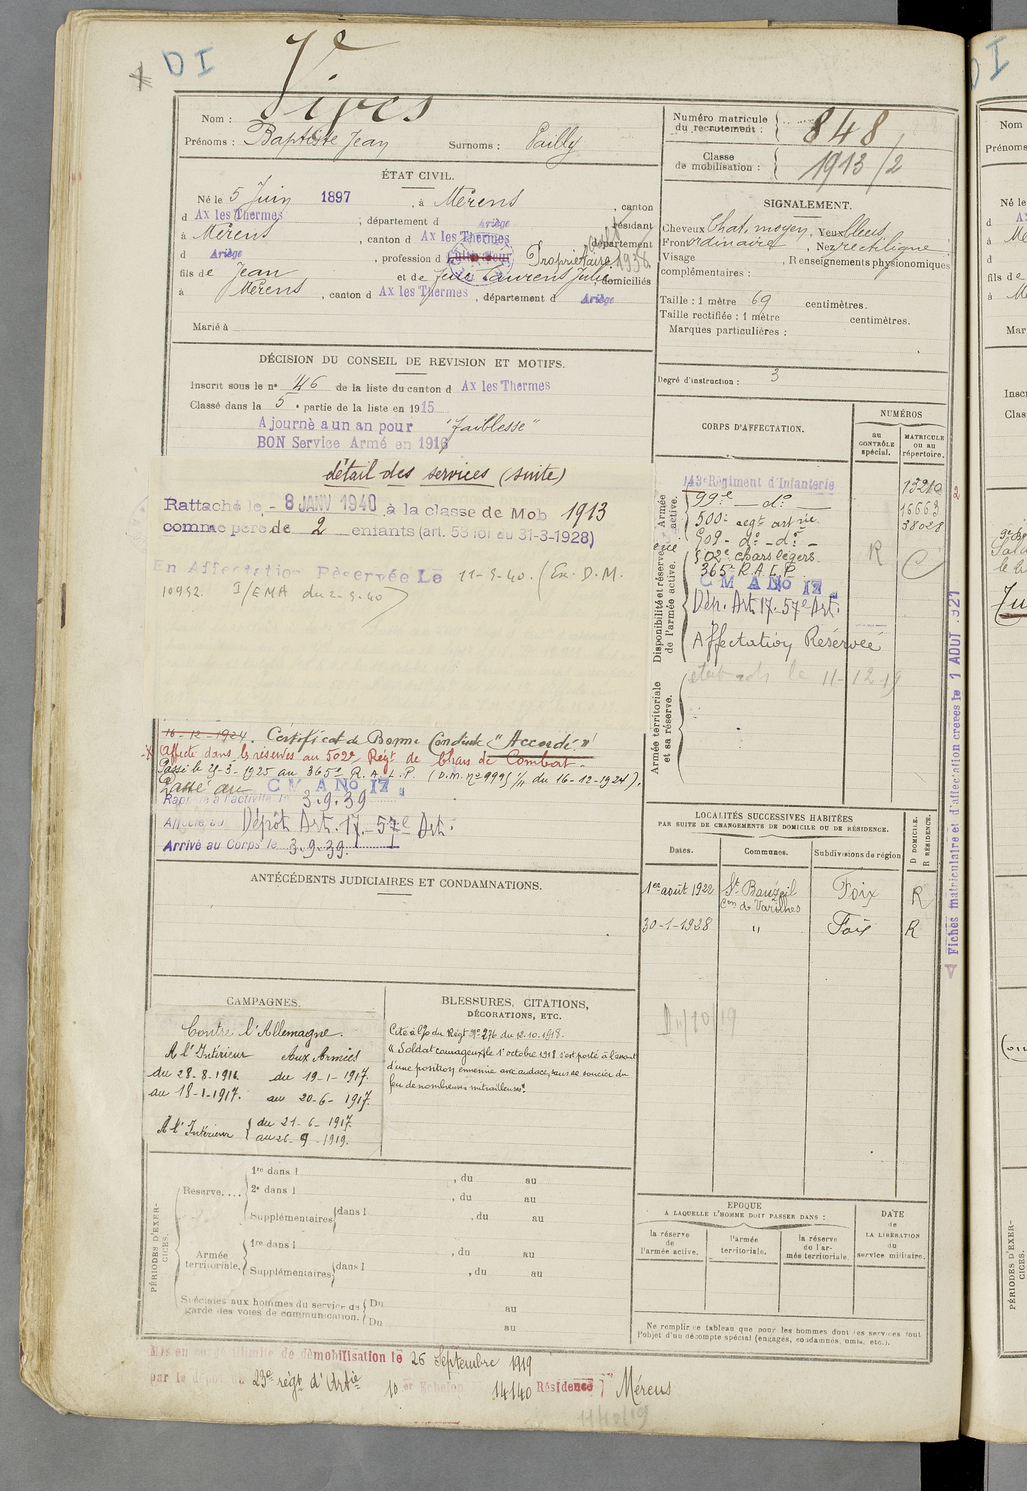 DI
7e
Nom : Vives
Prénoms : Baptiste Jean Surnoms : Pailly
Numéro matricule du recrutement : 848
Classe de mobilisation : 1913/2
ÉTAT CIVIL.
Né le 5 Juin 1897, à Mérens, canton
d Ax les Thermes, département d Ariège, résidant
à Mérens, canton d Ax les Thermes, département
d Ariège, profession d Cultivateur Propriétaire 1938.
fils de Jean et de Jule Laurens Julie, domiciliés
à Mérens, canton d Ax les Thermes, département d Ariège
Marié à
SIGNALEMENT.
Cheveux Chat. moyen, Yeux bleus
Front ordinaire, Nez rectiligne
Visage , Renseignements physionomiques
complémentaires :
Taille : 1 mètre 69 centimètres.
Taille rectifiée : 1 mètre centimètres.
Marques particulières :
Degré d'instruction : 3
DÉCISION DU CONSEIL DE REVISION ET MOTIFS.
Inscrit sous le n° 46 de la liste du canton d Ax les Thermes
Classé dans la 5e partie de la liste en 1915
Ajourné a un an pour "faiblesse"
BON Service Armé en 1916
détail des services (suite)
Rattaché le - 8 JANV 1940 à la classe de Mob 1913
comme père de 2 enfants (art. 58 loi du 31-3-1928)
En Affectation Réservée Le 11-5-40. (Ex. D.M.
10952 I/EMA du 2-5-40)
16-12-1924. Certificat de Bonne Conduite "Accordé"
Affecté dans les réserves au 502e Régt de Chars de Combat.
Passé le 25-3-1925 au 365e R.A.L.P. (D.M. n° 9995 1/11 du 16-12-1924).
Passé au C M A No 17.
Rappelé à l'activité le 3.9.39
Affecté au Dépôt Art. 17 - 57e Art.
Arrivé au Corps le 3.9.39.
CORPS D'AFFECTATION.
NUMÉROS
au CONTRÔLE spécial.
MATRICULE ou au répertoire.
Armée active.
143e Régiment d'Infanterie 13210
99e d° 16663
500e Regt artrie 38028
Disponibilité et réserve de l'armée active.
909 - d° - d° -
502e chars légers R C
365e R.A.L.P.
C M A No 17.
Dép. Art. 17 - 57e Art.
Affectation Réservée
Armée territoriale et sa réserve.
le 11-12-19
Fiches matriculaire et d'affectation créées le 1 AOUT 1921
ANTÉCÉDENTS JUDICIAIRES ET CONDAMNATIONS.
LOCALITÉS SUCCESSIVES HABITÉES
PAR SUITE DE CHANGEMENTS DE DOMICILE OU DE RÉSIDENCE.
Dates. Communes. Subdivisions de région D DOMICILE. R RÉSIDENCE.
1er août 1922 St Bauzeil Con de Varilhes Foix R
30-1-1928 " Foix R
CAMPAGNES.
Contre l'Allemagne.
A l'Intérieur Aux Armées
du 28-8-1916 du 19-1-1917.
au 18-1-1917. au 20-6-1917.
A l'Intérieur { du 21-6-1917.
au 26-9-1919.
BLESSURES, CITATIONS,
DÉCORATIONS, ETC.
Cité à l'o du Régt N° 276 du 12.10.1918.
"Soldat courageux, le 1er octobre 1918 s'est porté à l'avant
d'une position ennemie avec audace, sans se soucier du
feu de nombreuses mitrailleuses".
PÉRIODES D'EXERCICES.
Réserve.... 1re dans l , du au
2e dans l , du au
Supplémentaires dans l , du au
Armée territoriale. 1re dans l , du au
Supplémentaires dans l , du au
Spéciales aux hommes du service de garde des voies de communication. Du au
Du au
EPOQUE
A LAQUELLE L'HOMME DOIT PASSER DANS :
la réserve de l'armée active.
l'armée territoriale.
la réserve de l'armée territoriale.
DATE de LA LIBÉRATION du service militaire.
Ne remplir ce tableau que pour les hommes dont les services font
l'objet d'un décompte spécial (engagés, condamnés, omis, etc.).
Mis en congé illimité de démobilisation le 26 Septembre 1919
par le dépôt du 23e régt d'Artie 10 er Echelon 14140 Résidence Mérens
11/10/19